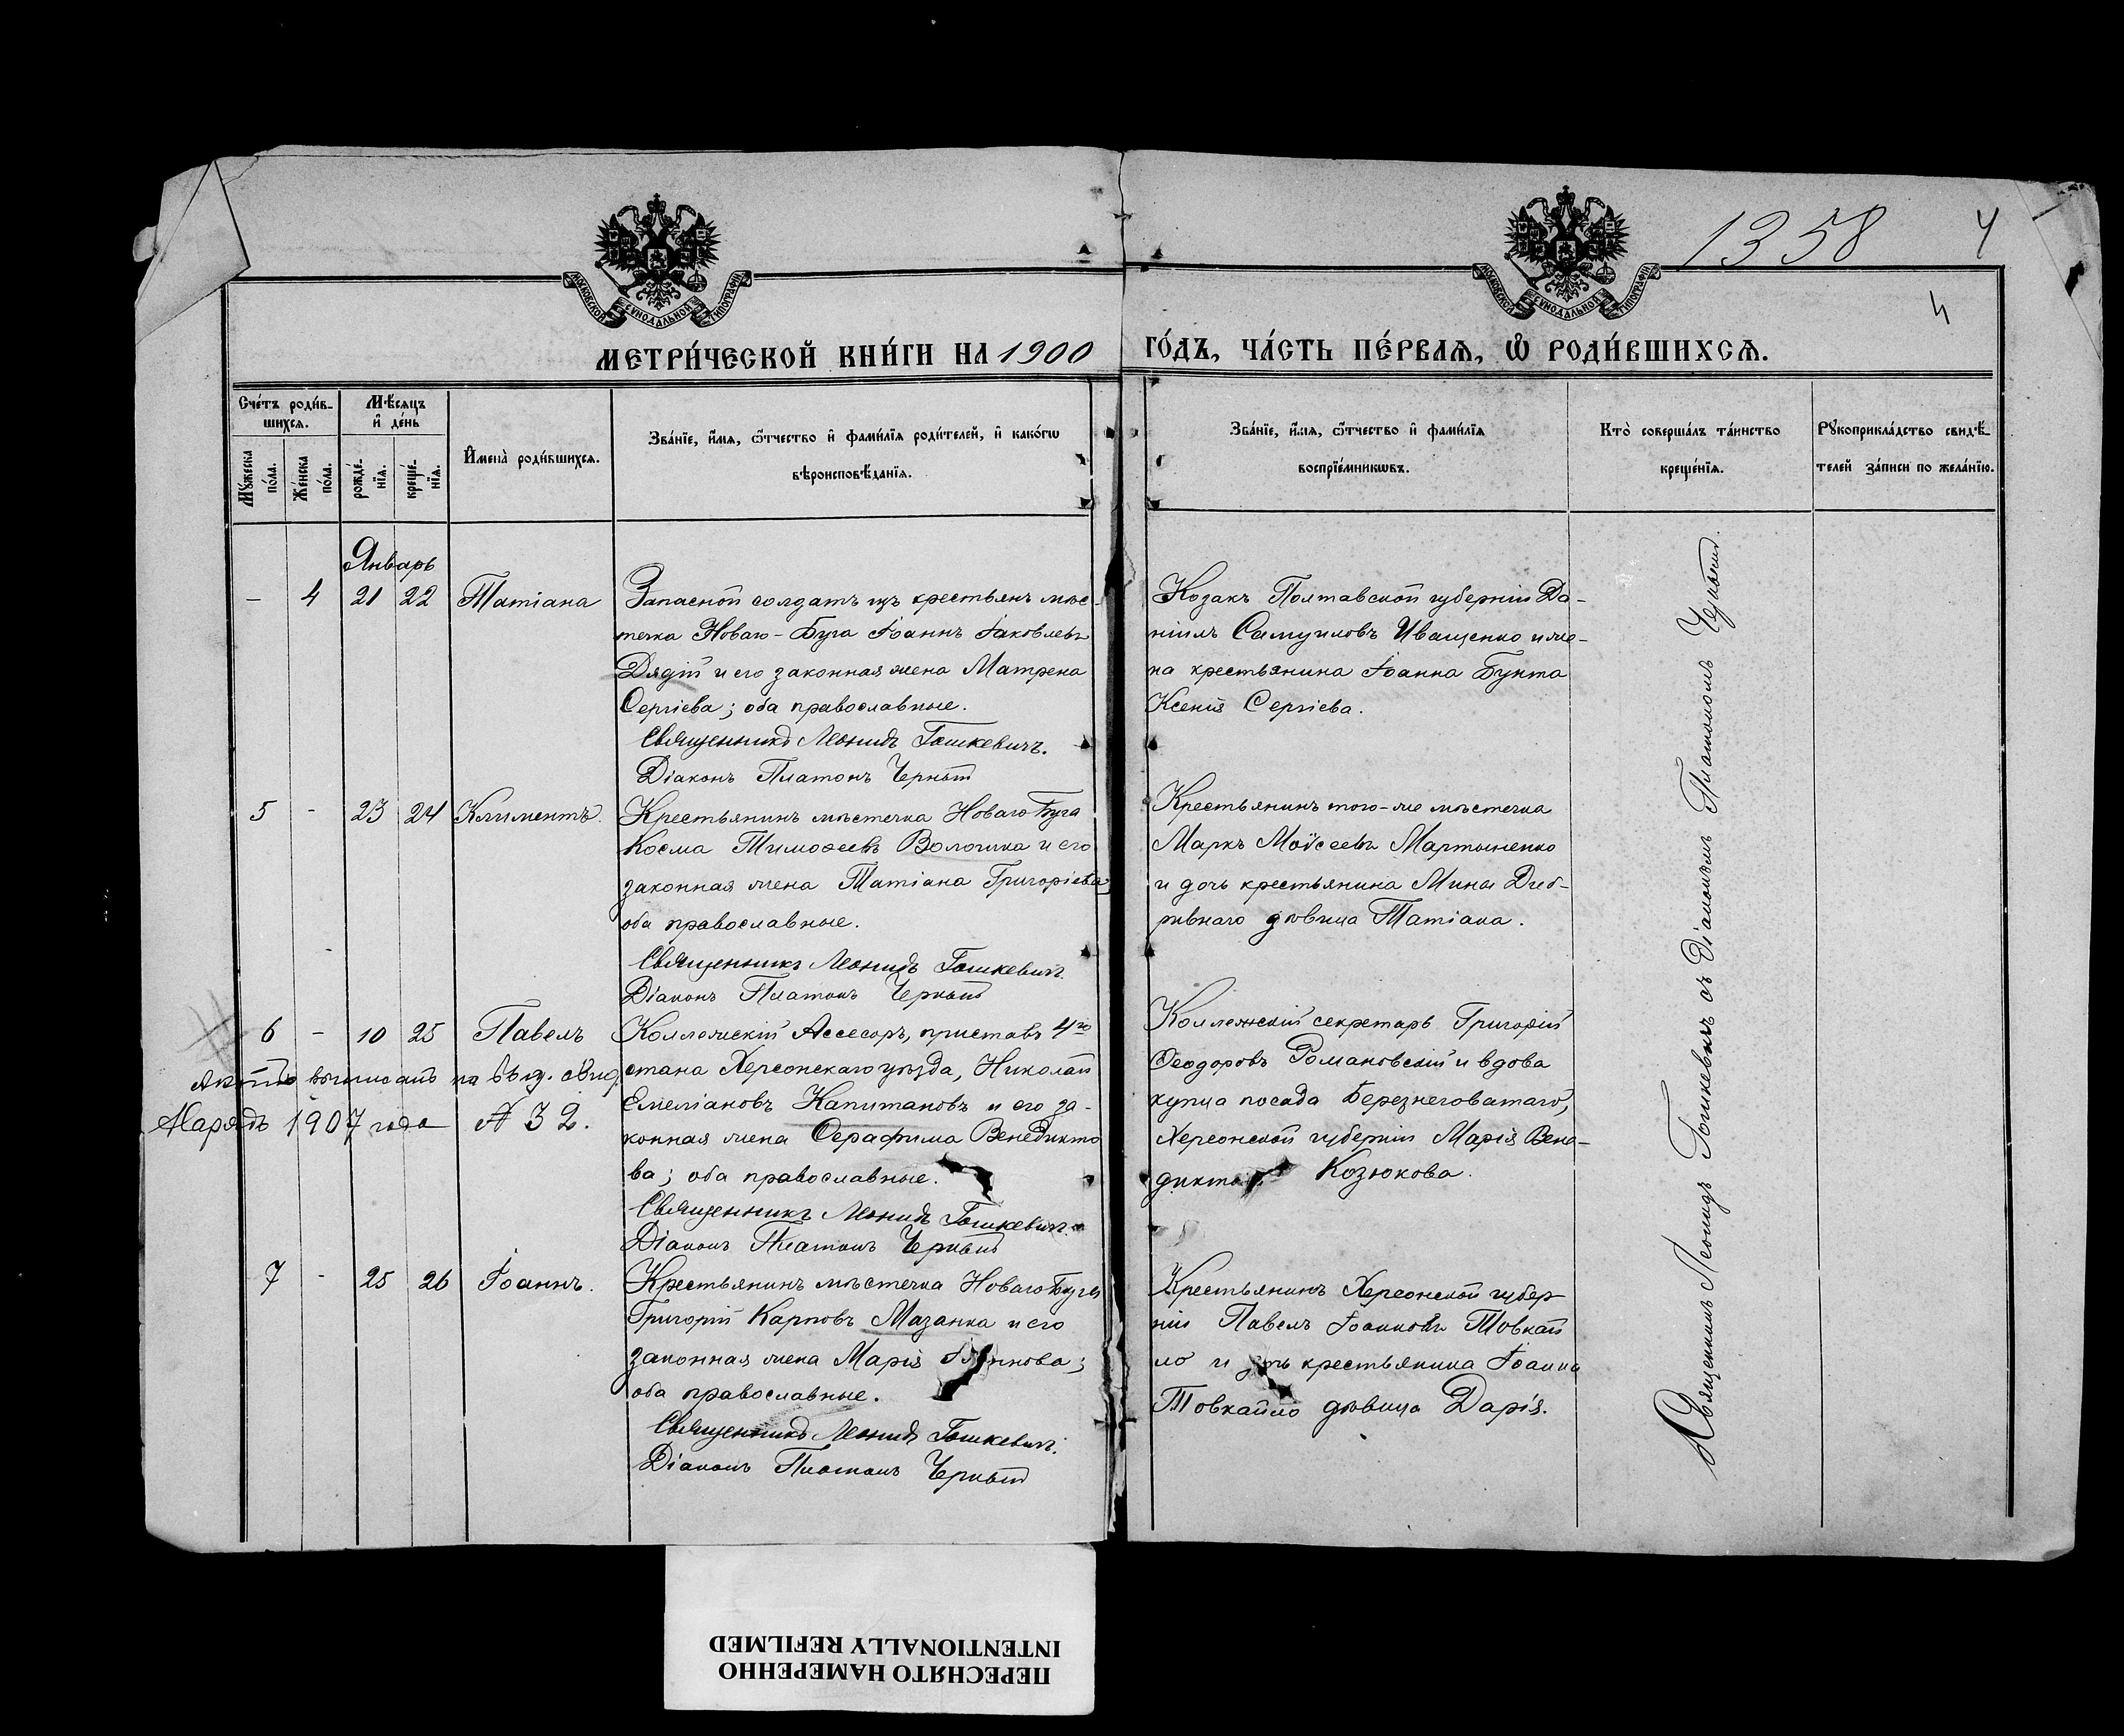 1358
4
4
МОСКОВСКОЙ СѴНОДАЛЬНОЙ ТИПОГРАФІИ
МОСКОВСКОЙ СѴНОДАЛЬНОЙ ТИПОГРАФІИ
МЕТРИ́ЧЕСКОЙ КНИ́ГИ НА 1900 ГО́ДЪ, ЧА́СТЬ ПЕ́РВАѦ, Ѡ҆ РОДИ́ВШИХСѦ.
Сче́тъ роди́в-
шихсѧ.
Мꙋ́жеска
по́ла.
Же́нска
по́ла.
Мѣ́сѧцъ
и҆ де́нь
рожде́-
нїѧ.
креще́-
нїѧ.
И҆мена̀ роди́вшихсѧ.
Зва́нїе, и҆́мѧ, ѻ҆́тчество и҆ фами́лїѧ роди́телей, и҆ како́гѡ
вѣроисповѣ́данїѧ.
Зва́нїе, и҆́мѧ, ѻ҆́тчество и҆ фами́лїѧ
воспрїе́мникѡвъ.
Кто̀ соверша́лъ та́инство
креще́нїѧ.
Рꙋкоприкла́дство свидѣ́-
телей за́писи по жела́нїю.
Январь
– 4 21 22 Татіана
Запасной солдатъ изъ крестьянъ мѣс-
течка Новаго-Буга Іоаннъ Іаковлевъ
Дядій и его законная жена Матрена
Сергіева; оба православные.
Священникъ Леонидъ Гошкевичъ.
Діаконъ Платонъ Черный
Козакъ Полтавской губерніи Да-
ніилъ Самуиловъ Иващенко и же-
на крестьянина Іоанна Бунта
Ксенія Сергіева.
5 - 23 24 Климентъ.
Крестьянинъ мѣстечка Новаго Буга
Косма Тимоѳеевъ Волошка и его
законная жена Татіана Григоріева
оба православные.
Священникъ Леонидъ Гошкевичъ
Діаконъ Платонъ Черный
Крестьянинъ того-же мѣстечка
Маркъ Моѵсеевъ Мартыненко
и дочь крестьянина Мины
дѣвица Татіана.
6 - 10 25 Павелъ
выписанъ на свид.
Нарядъ 1907 года № 32.
Коллежскій Ассесоръ, приставъ 4го
стана Херсонскаго уѣзда, Николай
Емеліановъ Капитановъ и его за-
конная жена Серафима Венедикто
ва; оба православные.
Священникъ Леонидъ Гошкевичъ
Діаконъ Платонъ Черный
Коллежскій секретарь Григорій
Ѳеодоровъ Романовскій и вдова
купца посада Березнеговатаго,
Херсонской губерніи Марія Вене-
Козюкова.
7 - 25 26 Іоаннъ.
Крестьянинъ мѣстечка Новаго Буга
Григорій Карповъ Мазанка и его
законная жена Марія
оба православные.
Священникъ Леонидъ Гошкевичъ.
Діаконъ Платонъ Черный
Крестьянинъ Херсонской губер
ніи Павелъ Іоанновъ Товкай
ло и крестьянина Іоанна
Товкайло дѣвица Дарія.
Священникъ Леонидъ Гошкевичъ съ Діакономъ Платономъ Чернымъ.
ПЕРЕСНЯТО НАМЕРЕННО
INTENTIONALLY REFILMED